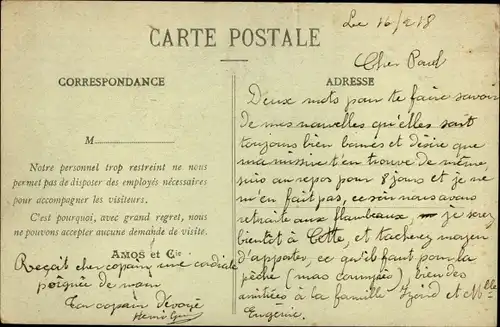 Le 16/2 18
CARTE POSTALE
CORRESPONDANCE
M
Notre personnel trop restreint ne nous
permet pas de distoter des employés nécessaires
pour accompagner les visiteurs.
C'est pourquoi, avec grand regret, nous
ne pouvons accepter aucune demande de visite.
AMOS et Cie
Reçait cher copain, une cordiale
poignée de main
Ton copain Dévoué
Cher Paul
ADRESSE
Deux mots pour te faire savoir
de mes nouvelles qu'elles sont
toujours bien bonnes et désire que
ma missive t'en trouve de même,
suis au repos pour 8 jours et je ne
m'en fait pas, ce soir nous avons
retraite aux flambeaux, je serez
bientôt à Cette, et tacherez moyen
d'apporter, ce qu'il faut pour la
pêche (mas coumprés) bien des
amitiées à la famille et Mlle
Eugénie.